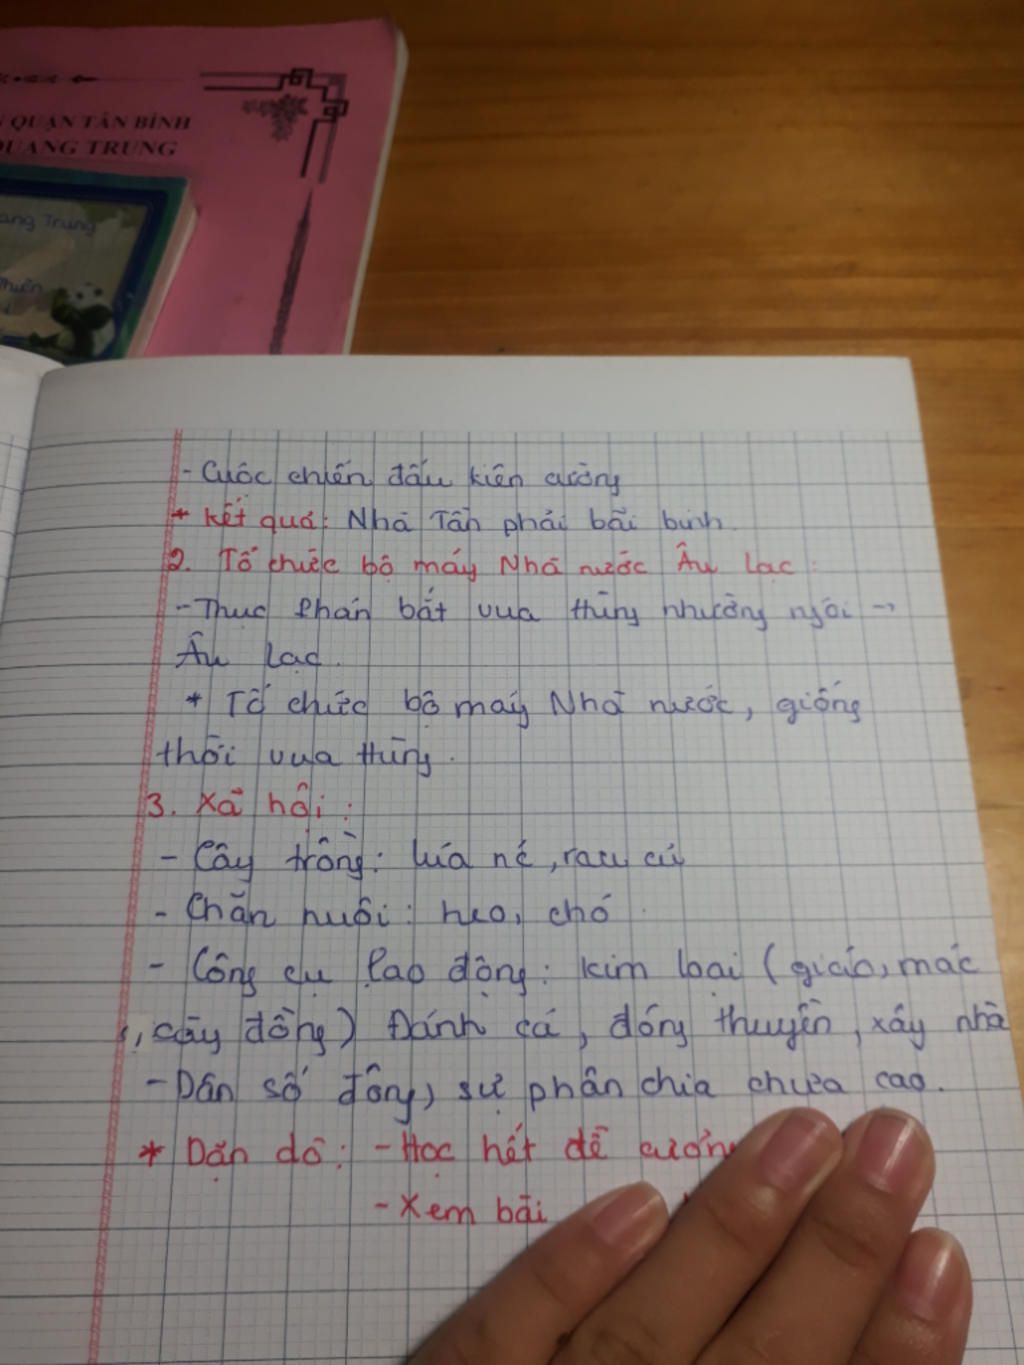 QUẬN TÂN BÌNH
QUANG TRUNG
ang Trung
- Cuộc chiến đấu kiên cường
* Kết quả: Nhà Tần phải bãi binh.
2. Tổ chức bộ máy Nhà nước Âu Lạc:
- Thục Phán bắt vua Hùng nhường ngôi →
Âu Lạc.
* Tổ chức bộ máy Nhà nước, giống
thời vua Hùng.
3. Xã hội:
- Cây trồng: lúa né, rau củ
- Chăn nuôi: heo, chó.
- Công cụ lao động: kim loại (giáo, mác
, cày đồng) Đánh cá, đóng thuyền, xây nhà
- Dân số đông, sự phân chia chưa cao.
* Dặn dò: - Học hết đề cương
- Xem bài